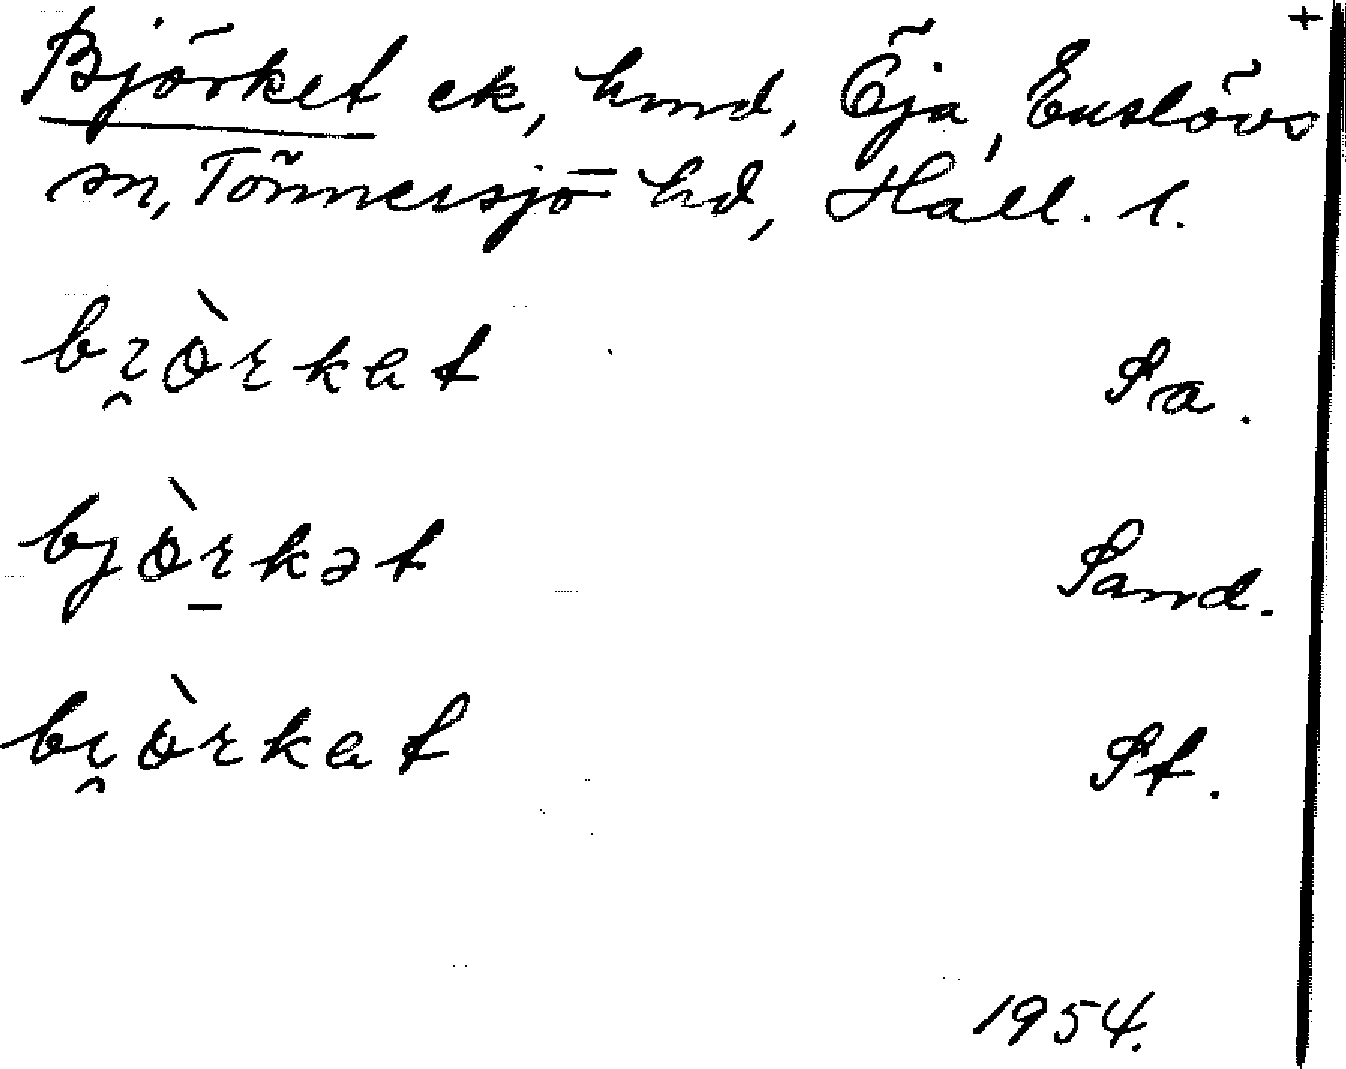 +
Björket ek, hmd, Öja, Enslövs
sn, Tönnersjö hd, Hall. l.
bi̯òrkat Sa.
bjòrkət Sand.
bi̯òrkat St.
1954.